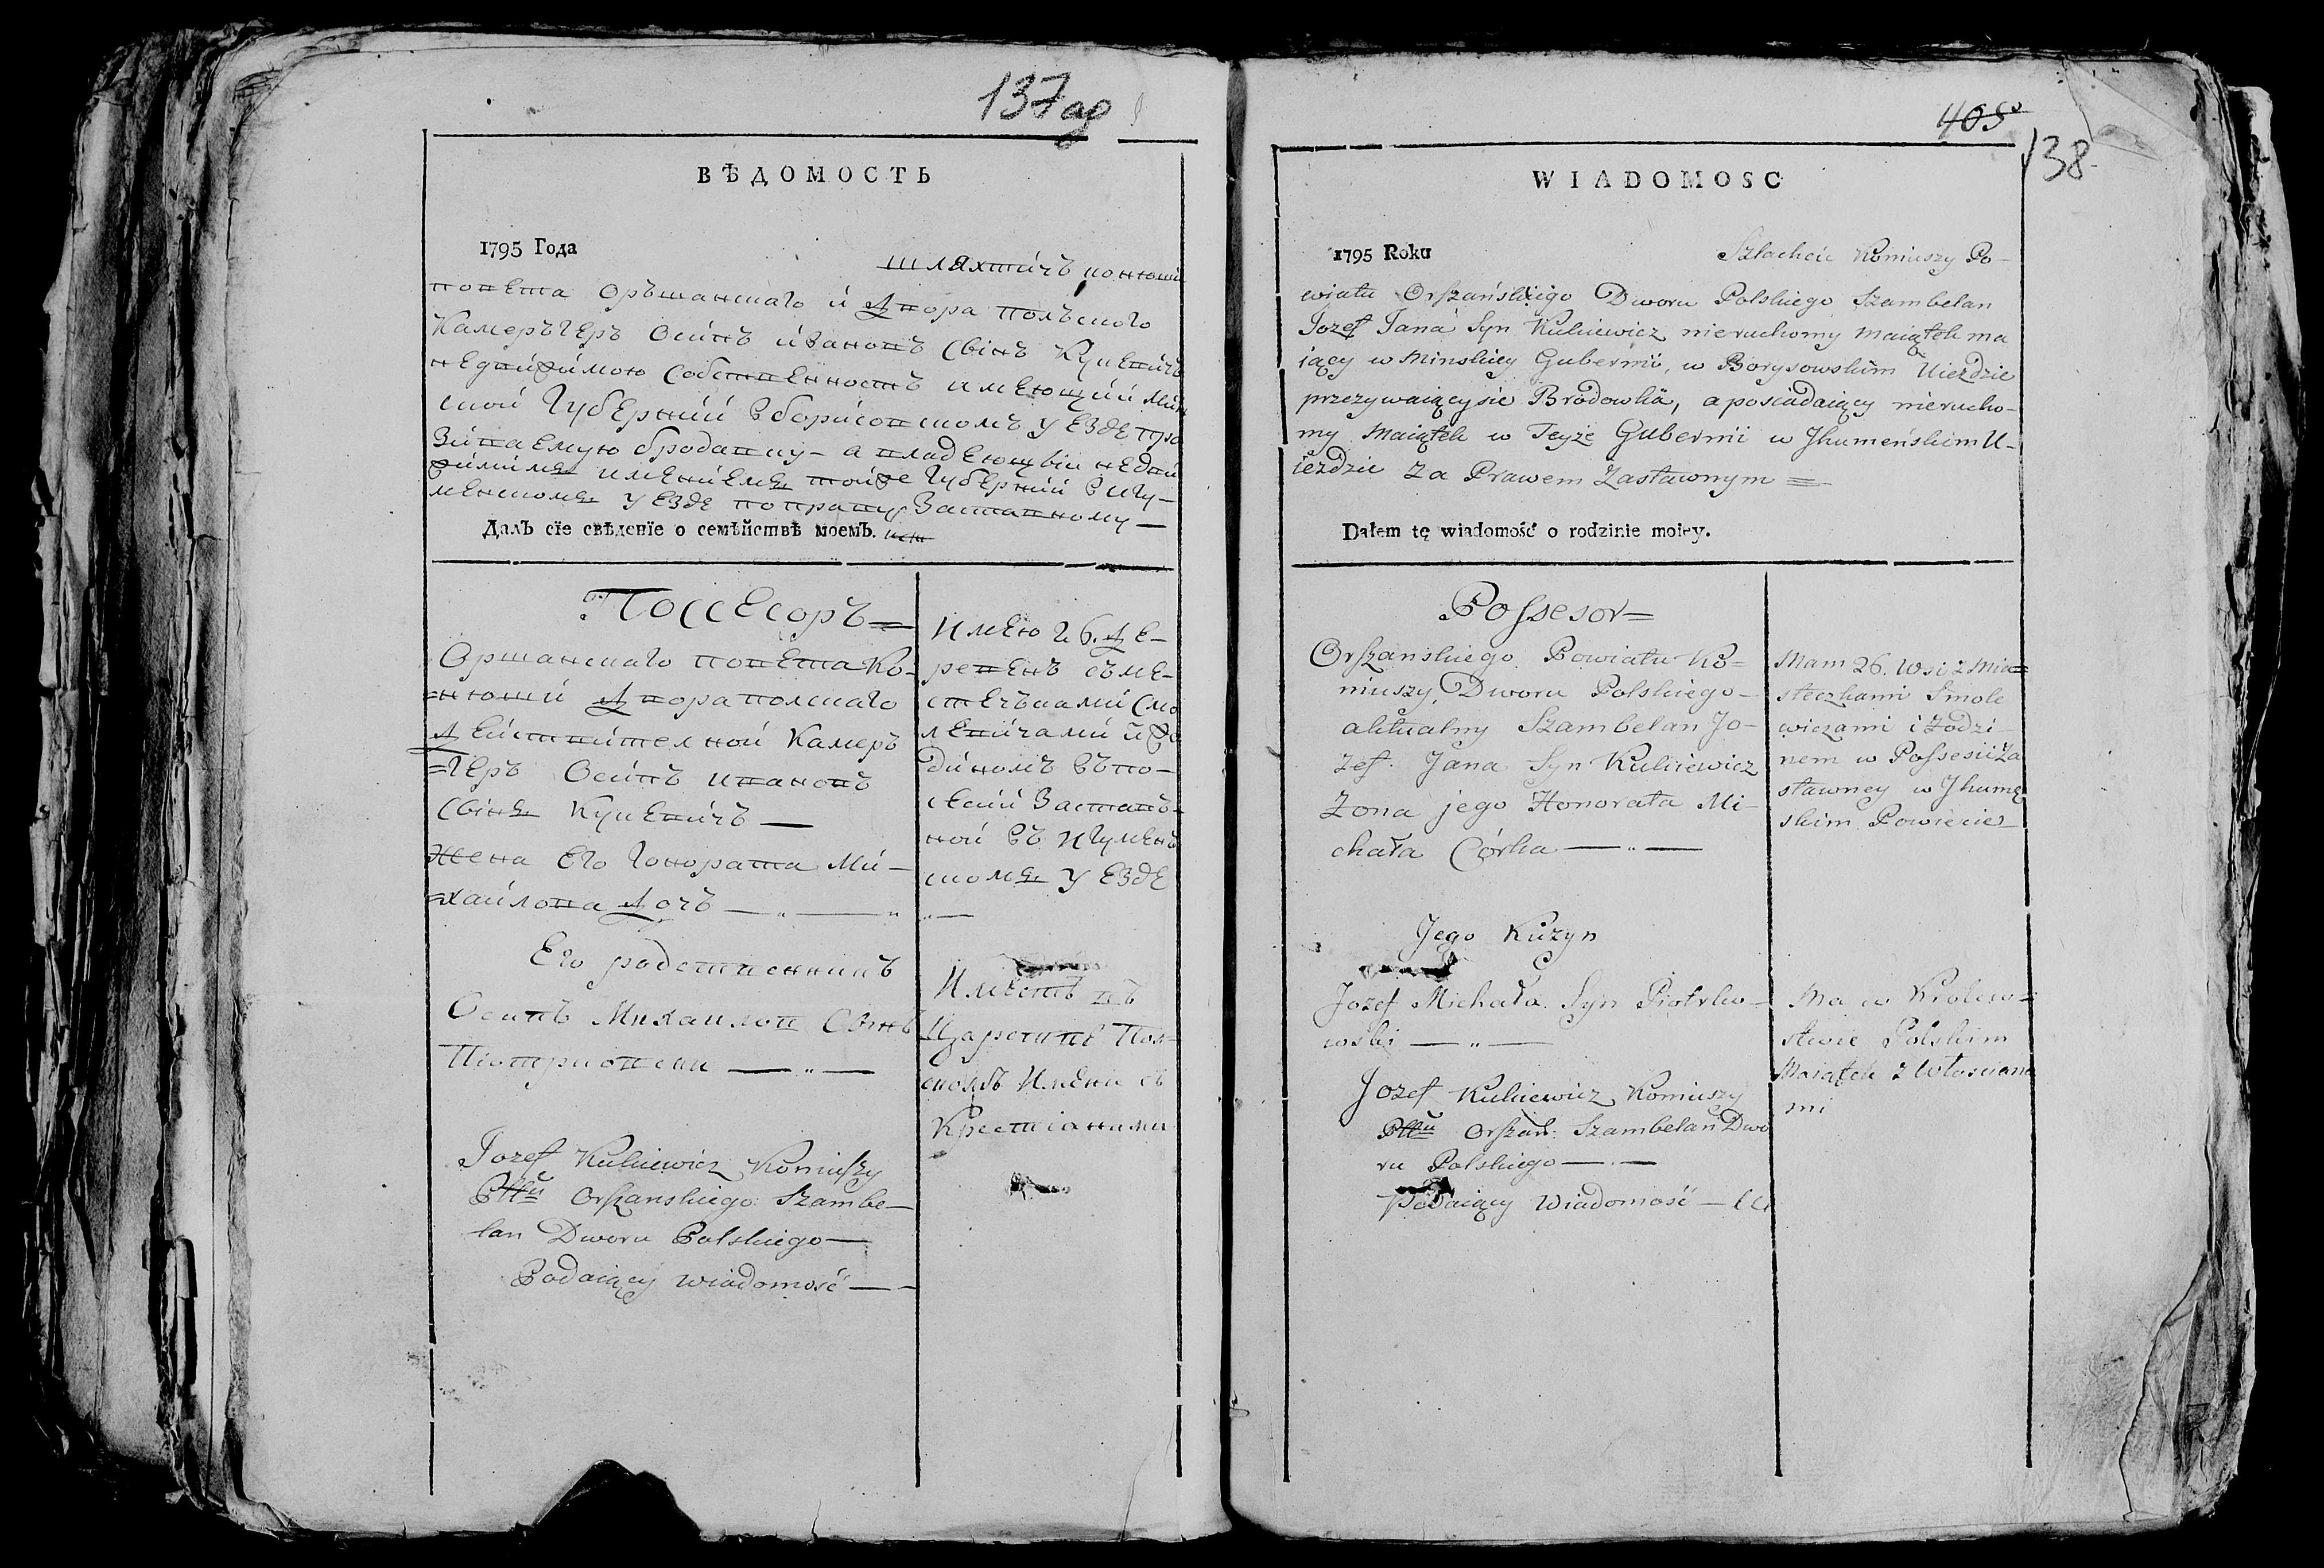 137 ад
ВѢДОМОСТЬ
1795 Года
шляхтичъ конюши
повета Оръшанскаго и Двора Полъского
Камеръгеръ Осипъ Иванопъ Свiнъ Кукевичъ
недвижимою Собственность имеющий Мин
ской Губернии в борисовскомъ уезде про
зиваемую бродавку – а владеющвiи недви
жимимъ имениемъ тойже Губернии в Игу–
менскомъ уезде по праву Заставному –
Далъ сїе свѣденїе о семѣйствѣ моемъ.
Поссесоръ =
Оршанскаго повета Ко-
=нюший Двора полскаго
Действителной Камеръ
=геръ Осипъ Ивановъ
Свiнъ Кукевичъ —
Жена Его Гонората Ми-
=хайлова Дочъ — „ —
Его родственникъ
Осипъ Михаилов Сынъ
Пiотрковски — „ —
Jozef Kukiewicz Koniuszy
Pttu Orszanskiego Szambe–
lan Dworu Polskiego —
Podaiący wiadomość — –
Имею 26. Де-
ревенъ съме-
стечъками Смо
левичами и Жо
диномъ въпо-
сесии Заставъ-
ной въ Игуменъ
скомъ уезде
„—
Имѣетъ въ
Царствѣ Пол-
скомъ Имѣни съ
Крестiанами
405
138
WIADOMOSC
1795 Roku
Szlachcic Koniuszy Po–
wiatu Orszańskiego Dworu Polskiego Szambelan
Jozef Jana Syn Kukiewicz nieruchomy maiątek ma
iący w Minskiey Gubernii, w Borysowskim Uieździe
przezywaiącysie Brodowka, a posiadaiący nierucho–
my Maiątek w Teyże Gubernii w Jhumeńskim U–
ieździe za Prawem Zastawnym =
Dałem tę wiadomość o rodzinie moiey.
Possesor =
Orszanskiego Powiatu Ko=
niuszy, Dworu Polskiego –
aktualny Szambelan Jo–
zef Jana Syn Kukiewicz
Zona jego Honorata Mi–
chała Córka — „ —
Jego Kuzyn
Jozef Michała Syn Piotrko–
wski — „ —
Jozef Kukiewicz Koniuszy
Pttu Orszań: Szambelan Dwo
ru Polskiego — . —
Podaiący Wiadomość —
Mam 26. Wsi z Mia=
steczkami Smole
wiczami i Żodzi–
nem w Possesii Za
stawney w Jhumę
skim Powiecie –
Ma w Krolew–
stwie Polskim
Maiątek z Włosciana
mi